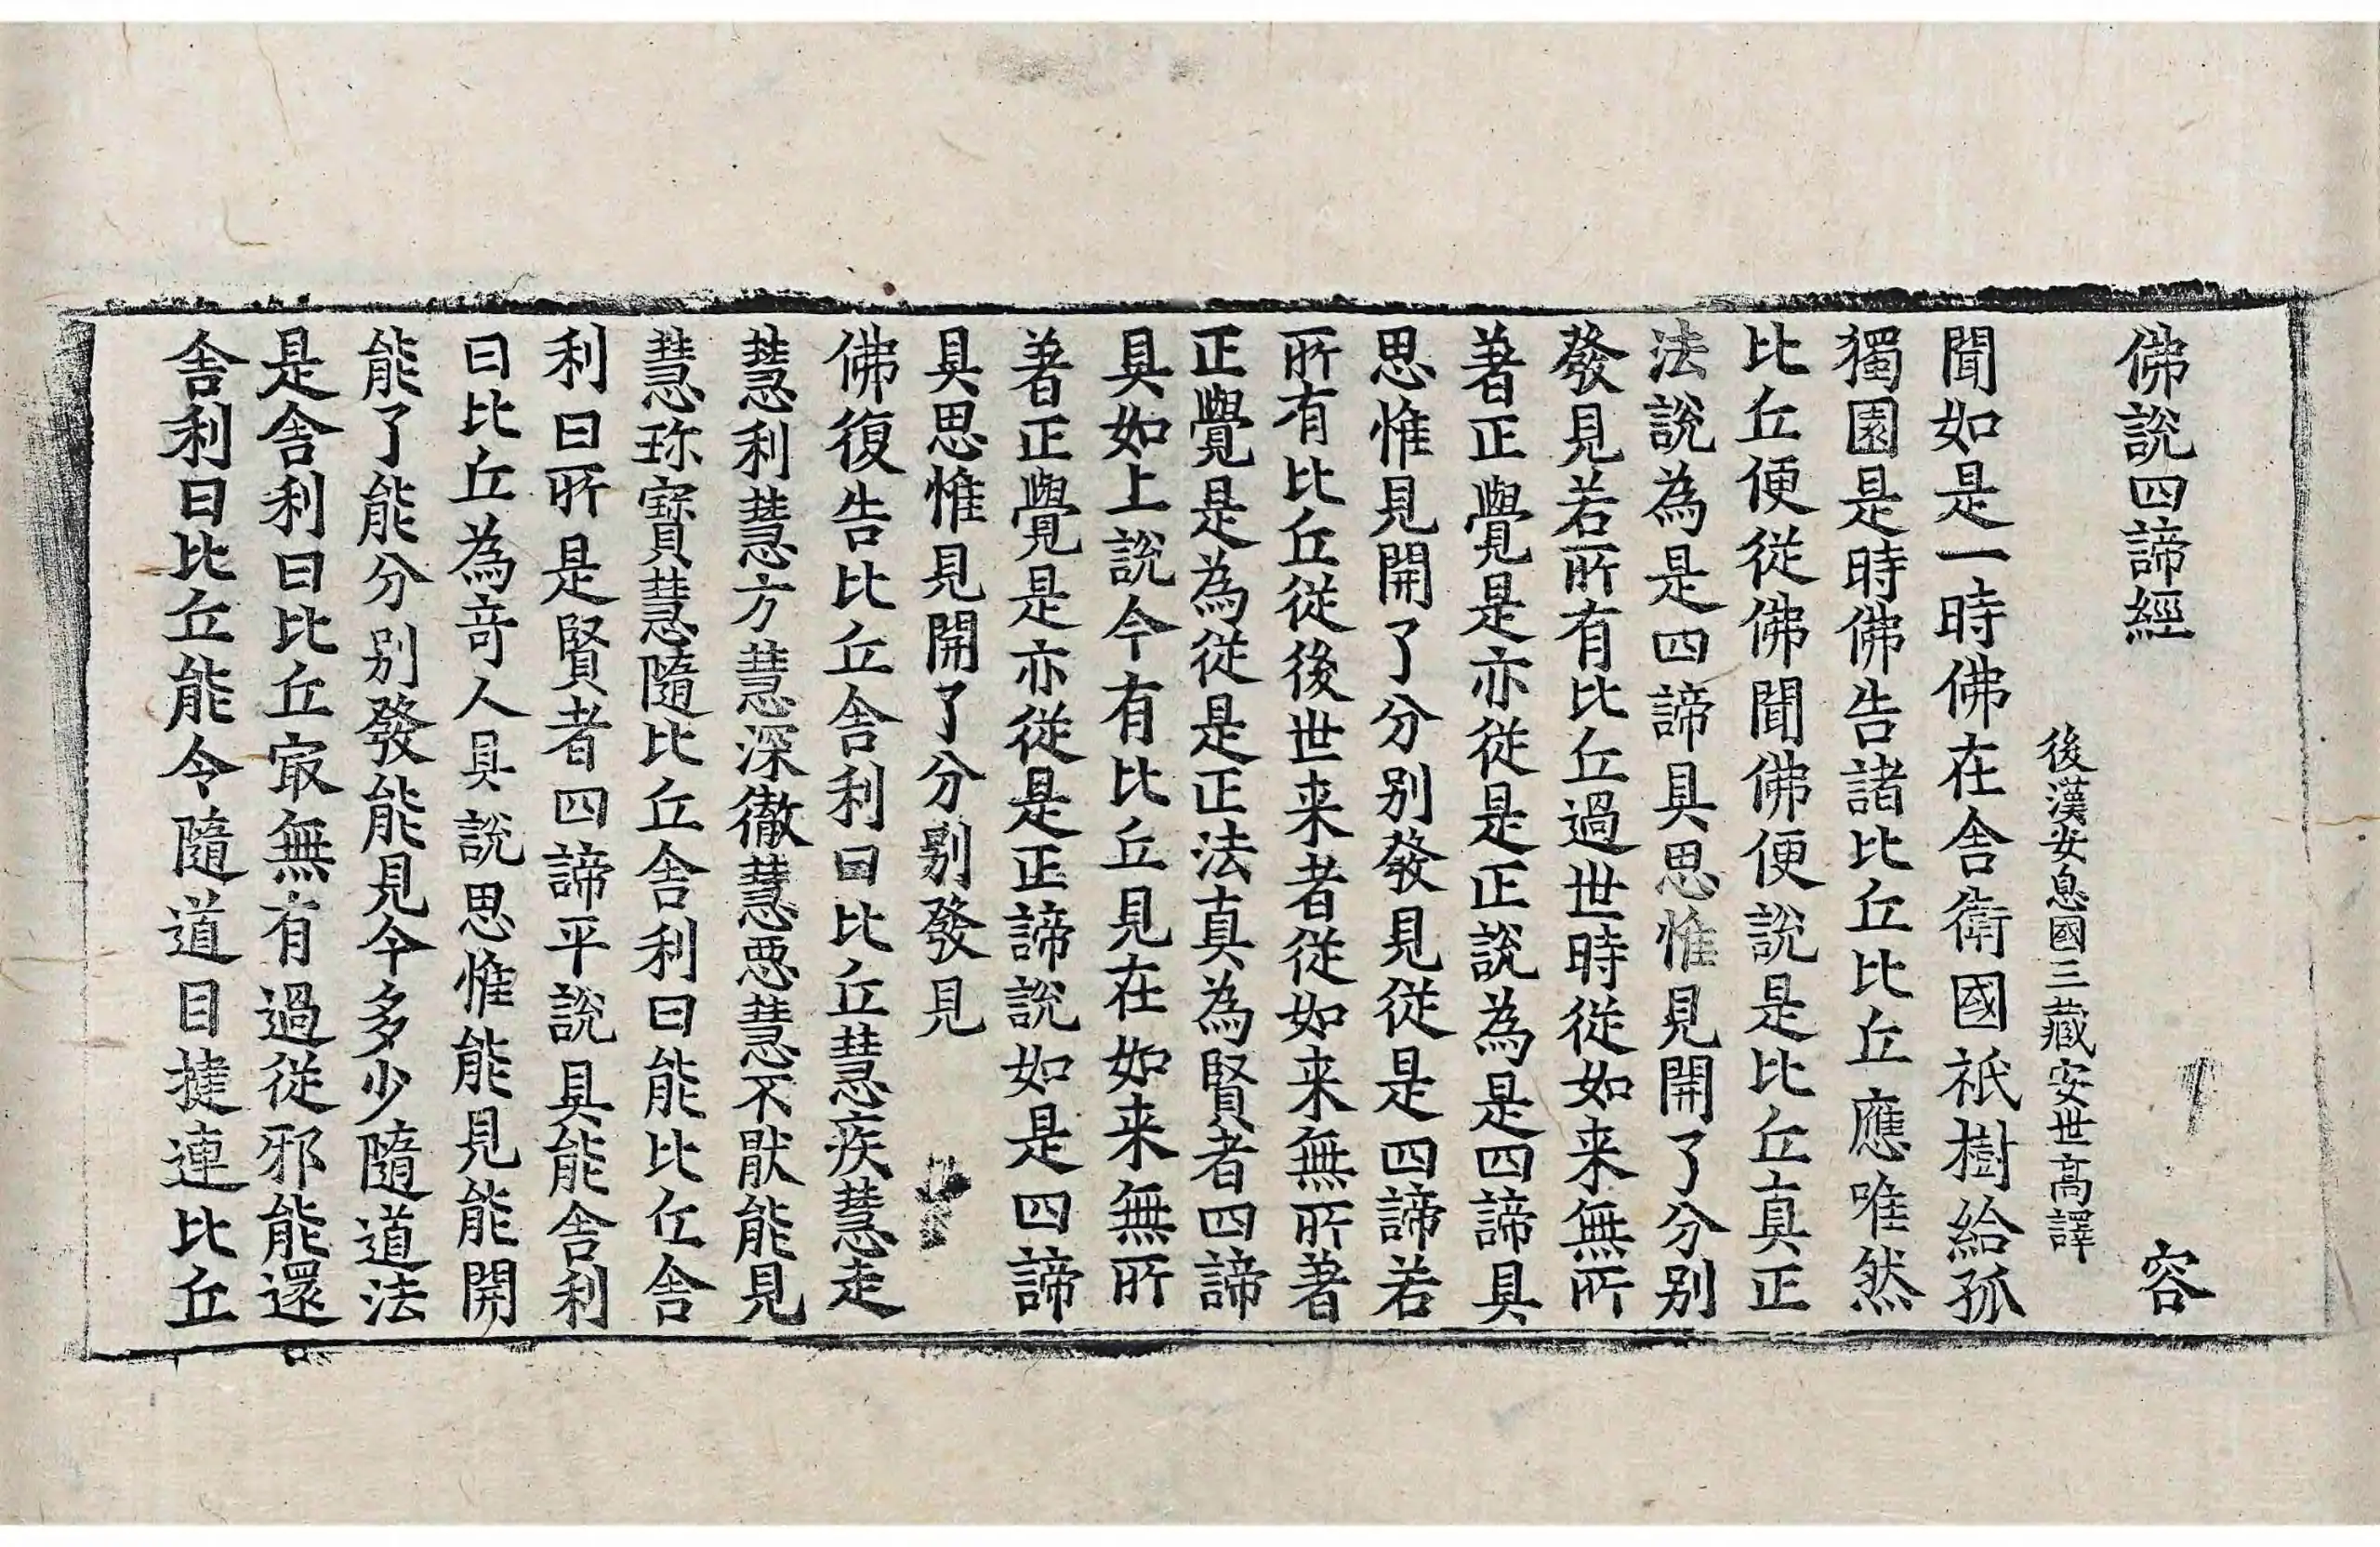 佛說四諦經 容
後漢安息國三藏安世高譯
聞如是一時佛在舍衛國祇樹給孤
獨園是時佛告諸比丘比丘應唯然
比丘便從佛聞佛便說是比丘真正
法說為是四諦具思惟見開了分别
發見若所有比丘過世時從如来無所
著正覺是亦從是正說為是四諦具
思惟見開了分别發見從是四諦若
所有比丘從後世来者從如来無所著
正覺是為從是正法真為賢者四諦
具如上說今有比丘見在如来無所
著正覺是亦從是正諦說如是四諦
具思惟見開了分别發見
佛復告比丘舍利曰比丘慧疾慧走
慧利慧方慧深徹慧惡慧不猒能見
慧珎寳慧隨比丘舍利曰能比丘舍
利曰所是賢者四諦平說具能舍利
曰比丘為竒人具說思惟能見能開
能了能分别發能見今多少隨道法
是舍利曰比丘㝡無有過從邪能還
舍利曰比丘能令隨道目揵連比丘